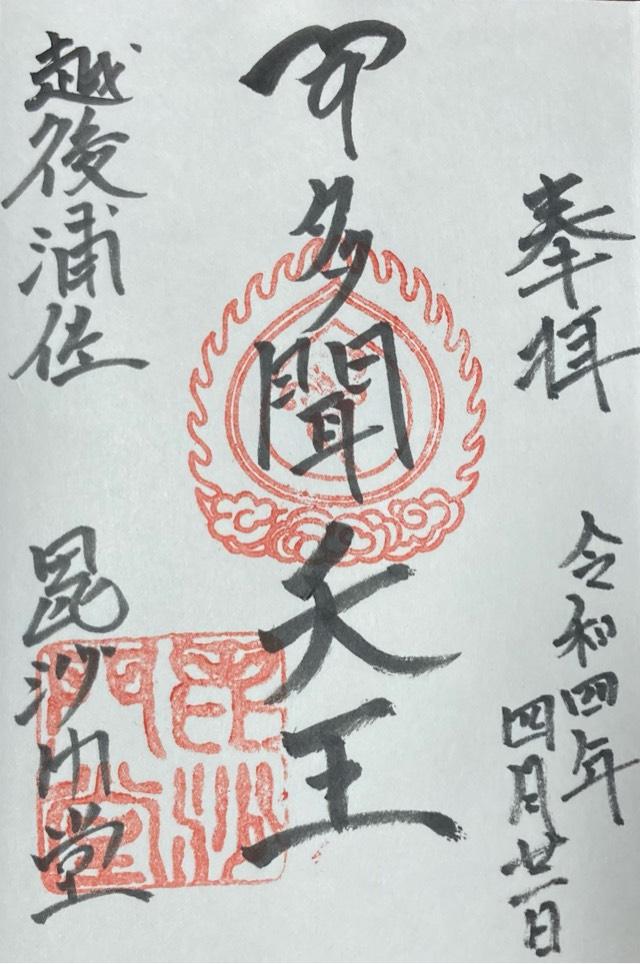 奉拝
令和四年
四月廿一日
多聞天王
越後浦佐
毘沙门堂
毘沙
門堂